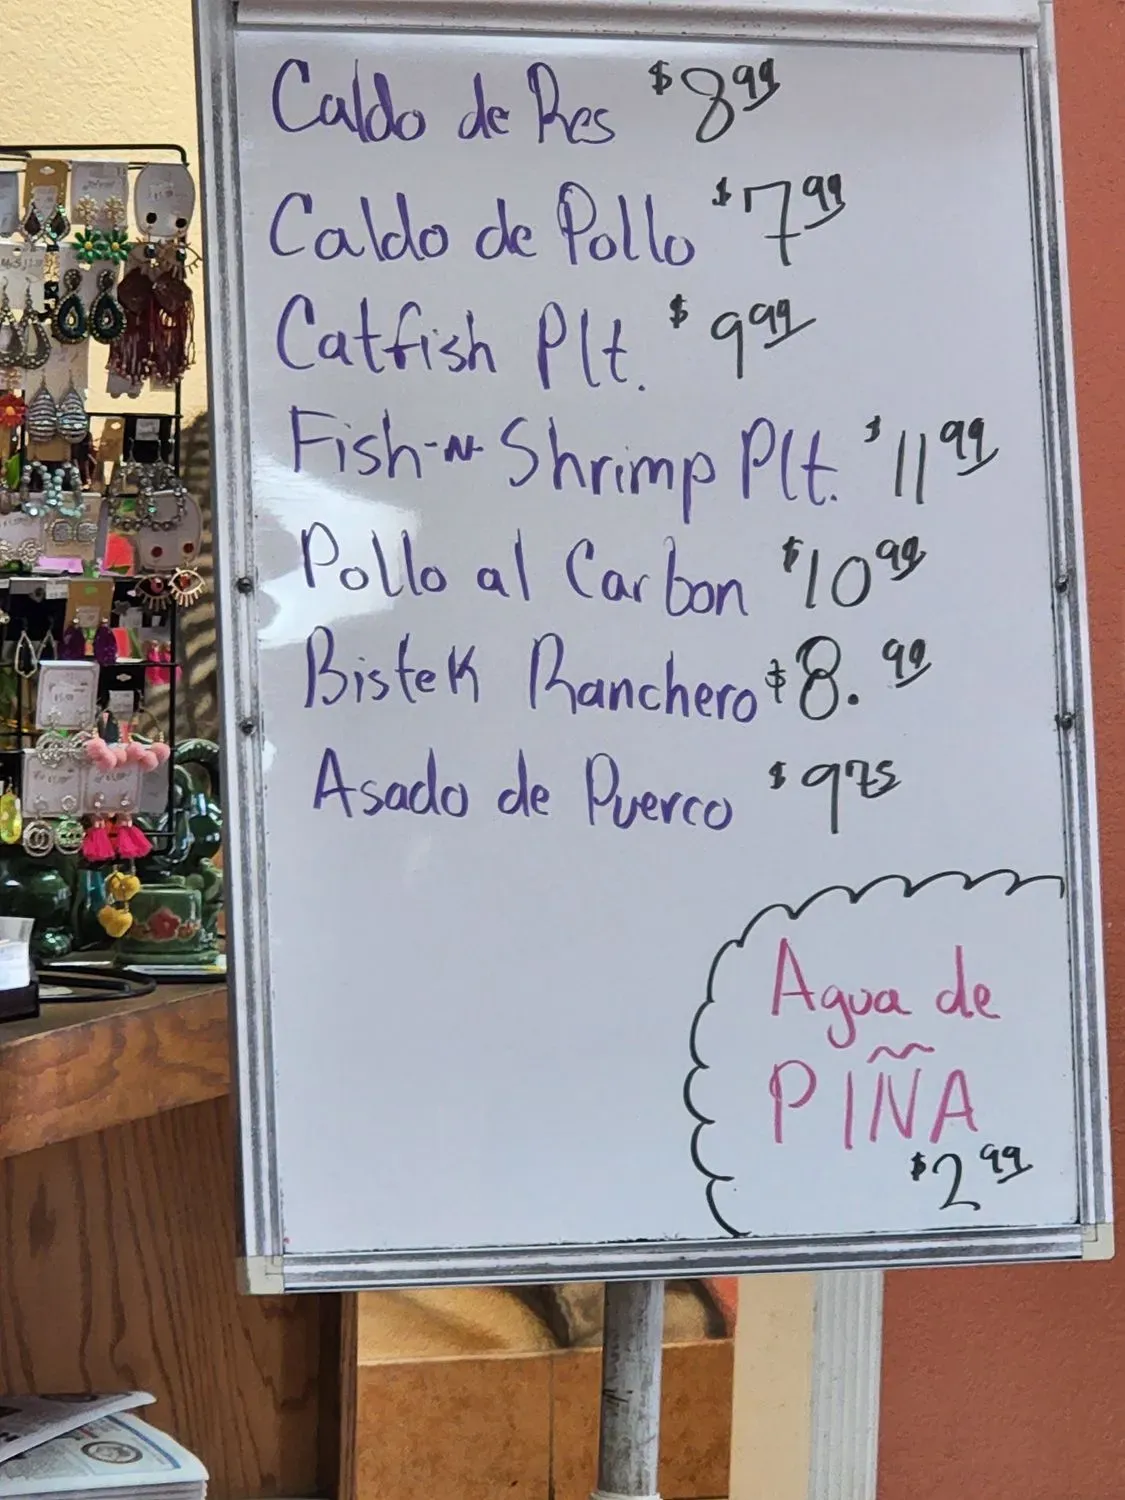 Caldo de Res $8.99
Caldo de Pollo $7.99
Catfish Plt. $9.99
Fish-N-Shrimp Plt. $11.99
Pollo al Carbon $10.99
Bistek Ranchero $8.99
Asado de Puerco $9.75
Agua de
PIÑA
$2.99